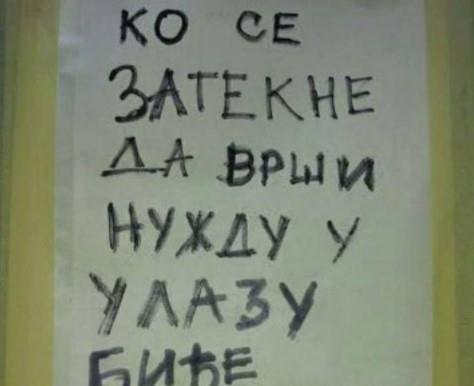 КО СЕ
ЗАТЕКНЕ
ДА ВРШИ
НУЖДУ У
УЛАЗУ
БИЋЕ